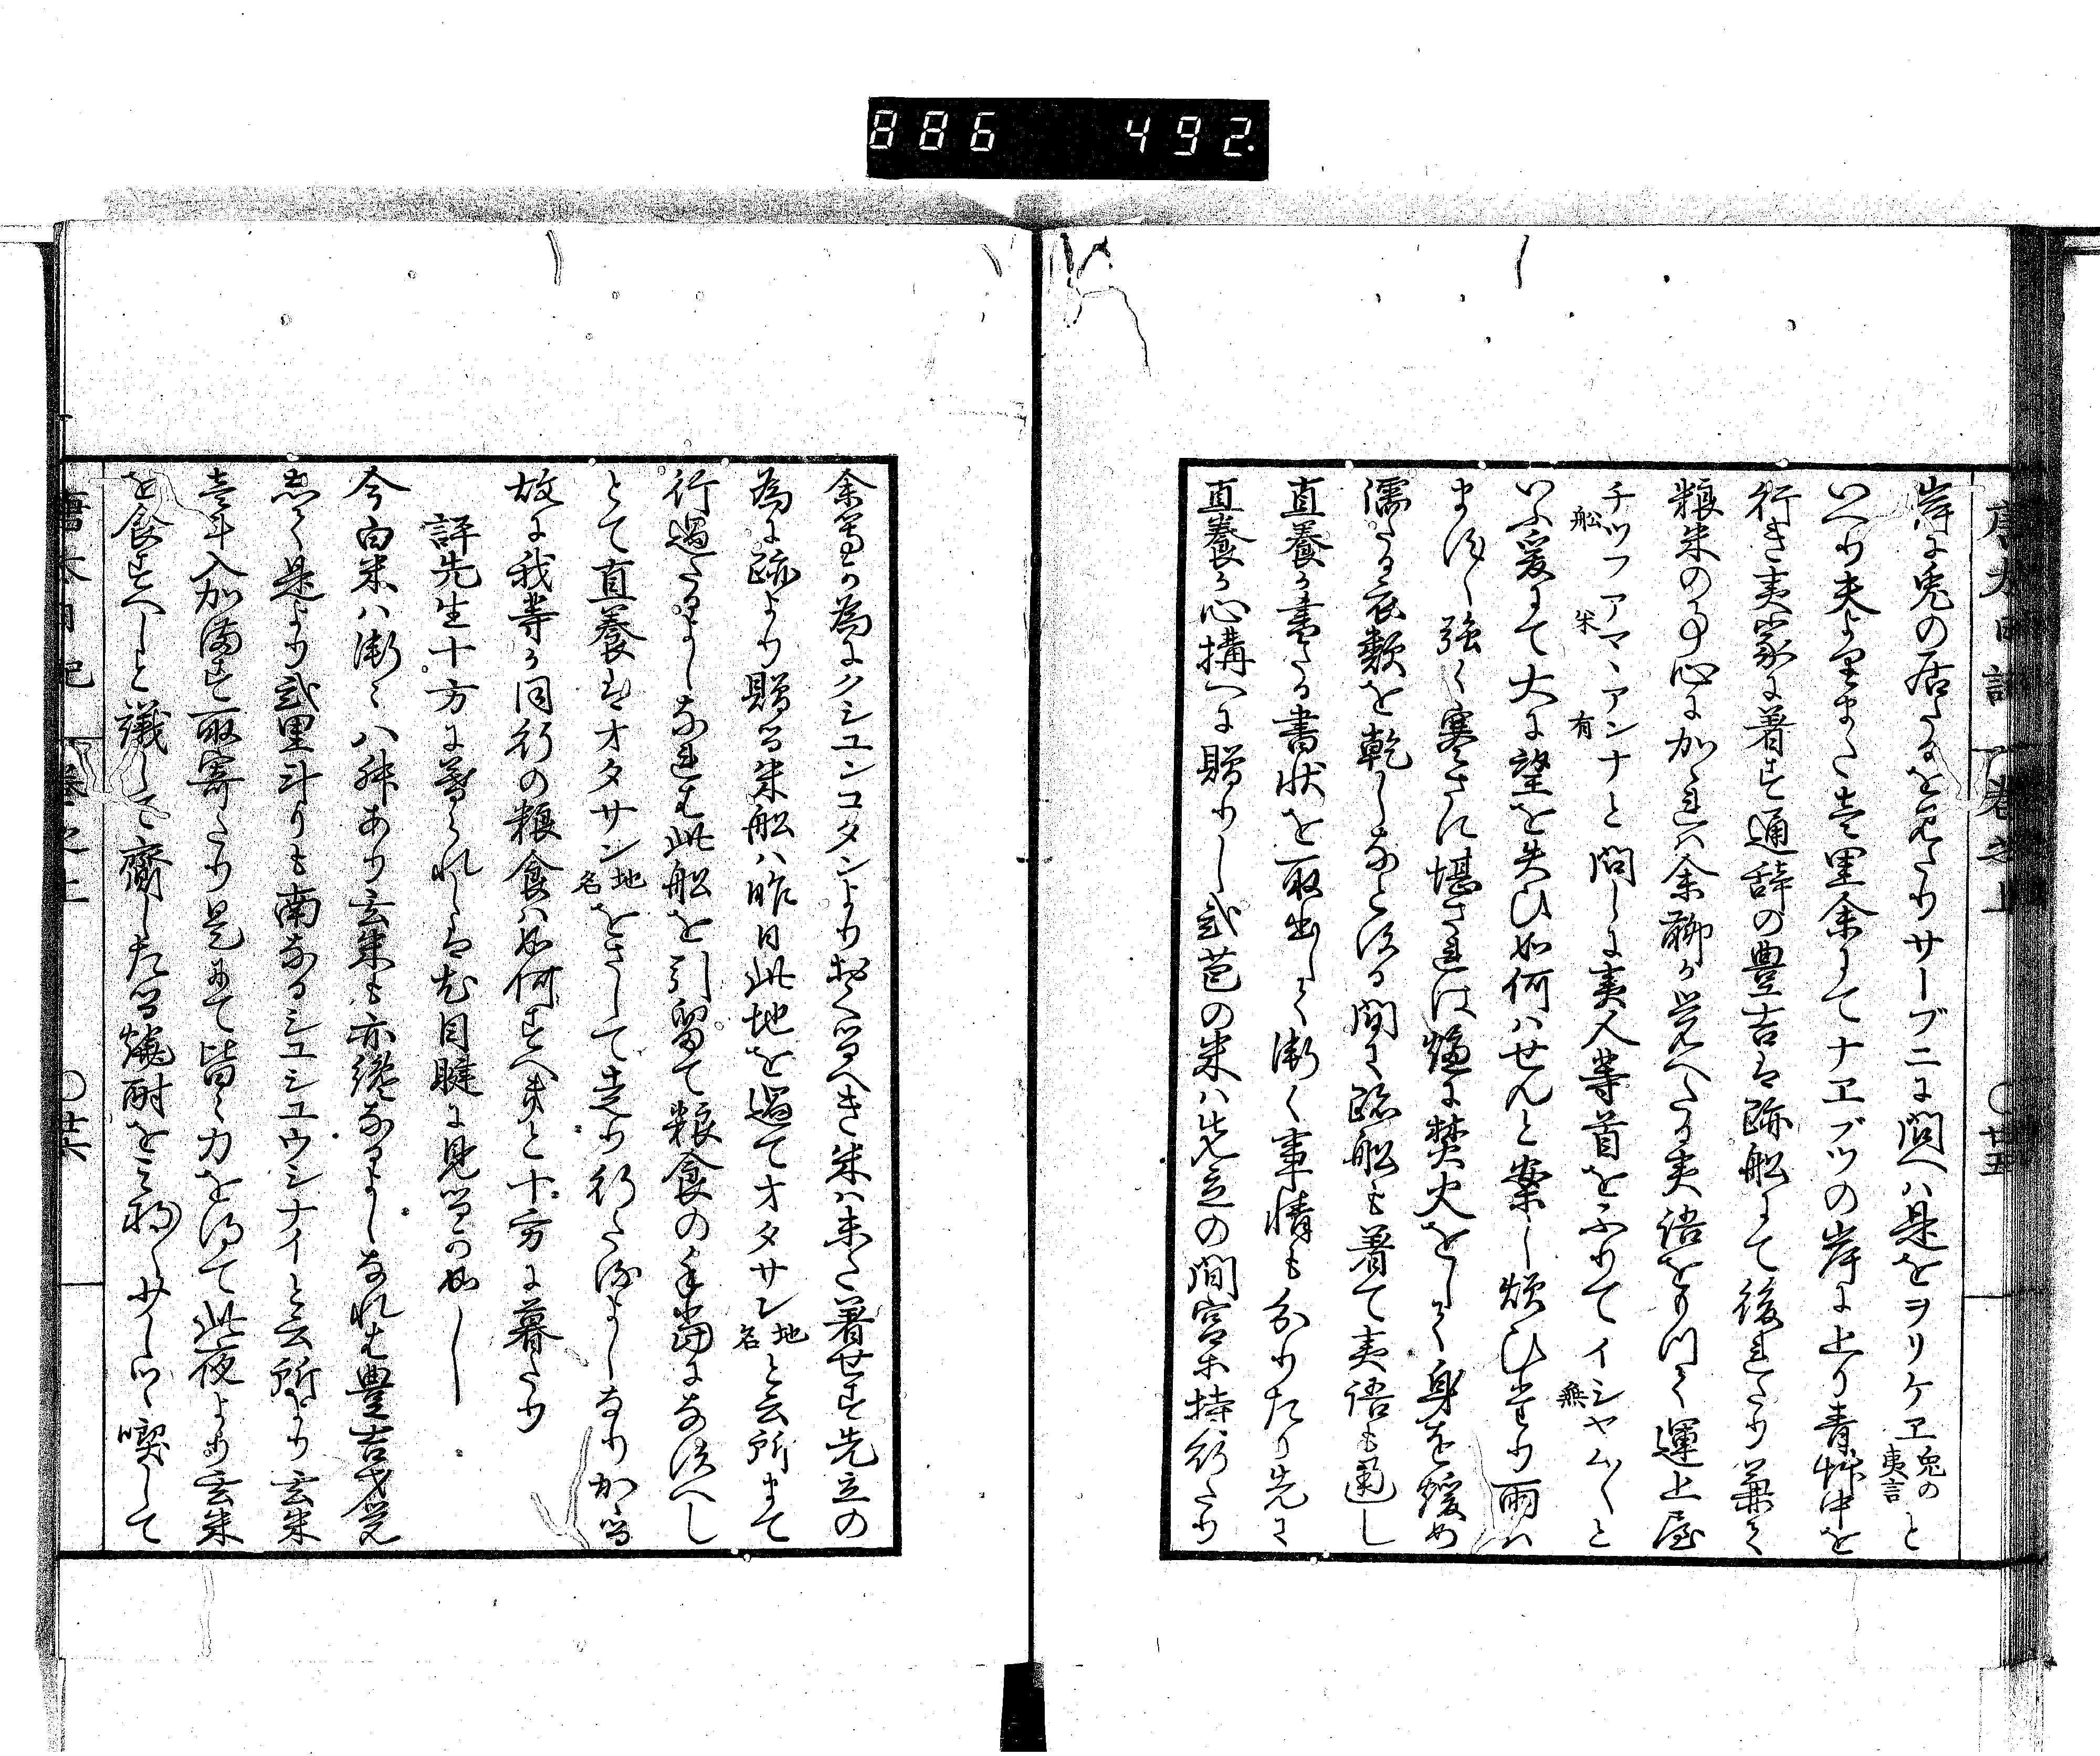 886 492.
唐太日記 巻之上 ○廿五
岸に兎の居るを見たりサーブニに問へハ是をヲリケヱ兎の夷言と
いへり夫よりまた壱里余にてナヱブツの岸に上り青草中を
行き夷家に着す通辞の豊吉は跡船にて後れたり兼て
粮米の事心に加れハ余聊か覚へたる夷語をもつて運上屋
チツフ船アマヽ米アンナ有と問しに夷人等首をふりてイシヤム無〱と
いふ爰にて大に望を失ひ如何ハせんと案し煩ひ居り雨ハ
ます〱強く寒さに堪されは炉に焚火をして身を煖め
濡たる衣類を乾しなとする間に跡船も着て夷語も通し
直養か書たる書状を取出して漸く事情も分りたり先に
直養か心構へに贈りし弐苞の米ハ先立の間宮等持行たり
余等か為にクシユンコタンよりおくるへき米ハ未た着せす先立の
為に跡より贈る米船ハ昨日此地を過てオタサン地名と云所まて
行過たるよしなれは此船を引留て粮食の手当になすへし
とて直養はオタサン地名をさして走り行たるよしなりかゝる
故に我等か同行の粮食ハ如何すへきと十方に暮たり
評先生十方に暮られしは尤目睫に見るか如し
今白米ハ漸々八舛あり玄米も亦纔なるよしなれは豊吉才覚
して是より弐里斗りも南なるシユシユウシナイと云所より玄米
壱斗入加満す取寄たり是にて皆々力を得て此夜より玄米
を食すへしと議して齎したる焼酎を三杓〱少しつゝ喫して
唐太日記 巻之上 ○廿六